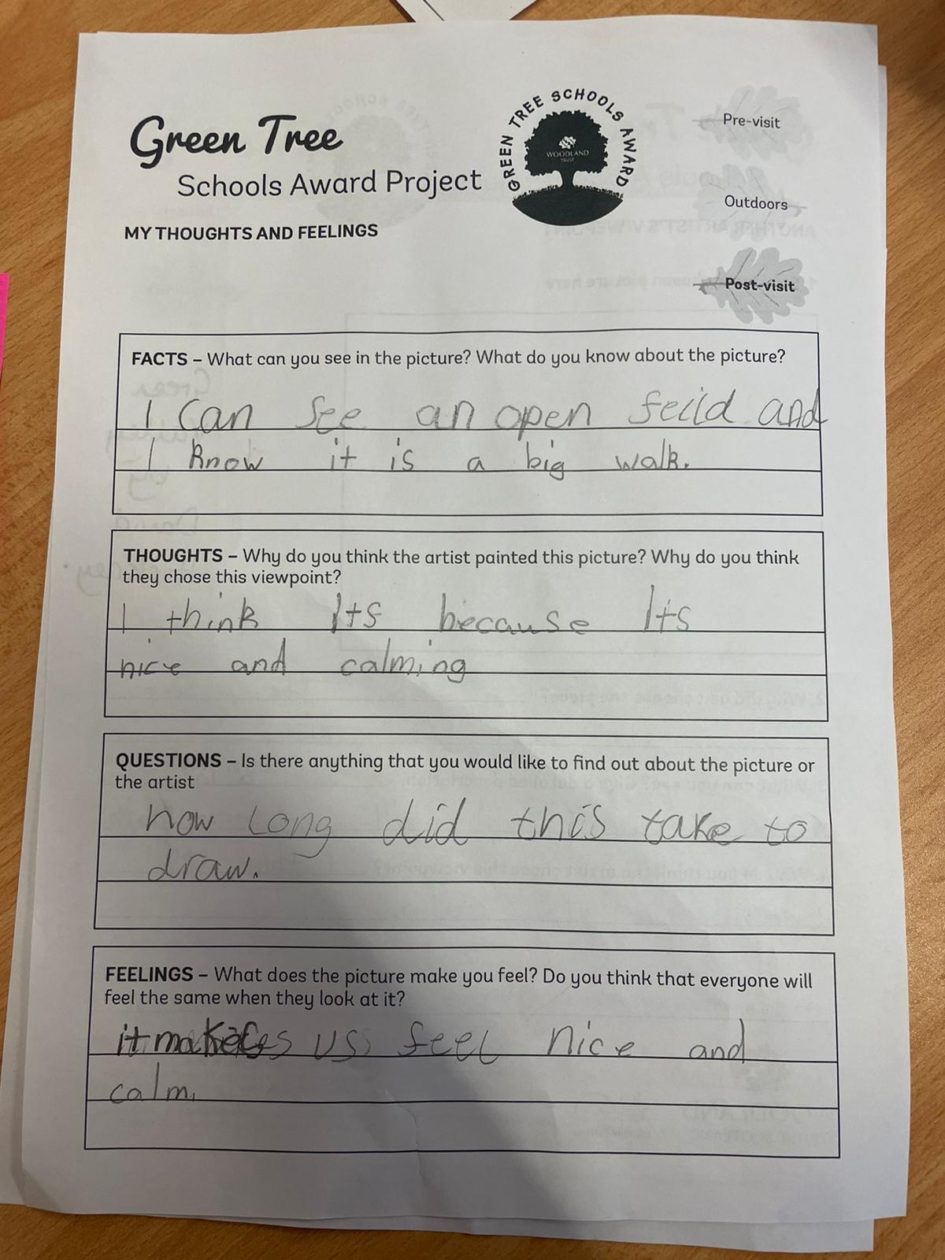 Green Tree
Schools Award Project
GREEN TREE SCHOOLS AWARD
WOODLAND
TRUST
Pre-visit
Outdoors
Post-visit
MY THOUGHTS AND FEELINGS
FACTS – What can you see in the picture? What do you know about the picture?
I can see an open feild and
I know it is a big walk.
THOUGHTS – Why do you think the artist painted this picture? Why do you think
they chose this viewpoint?
I think Its because Its
nice and calming
QUESTIONS – Is there anything that you would like to find out about the picture or
the artist
how long did this take to
draw.
FEELINGS – What does the picture make you feel? Do you think that everyone will
feel the same when they look at it?
it makes us feel nice and
calm.